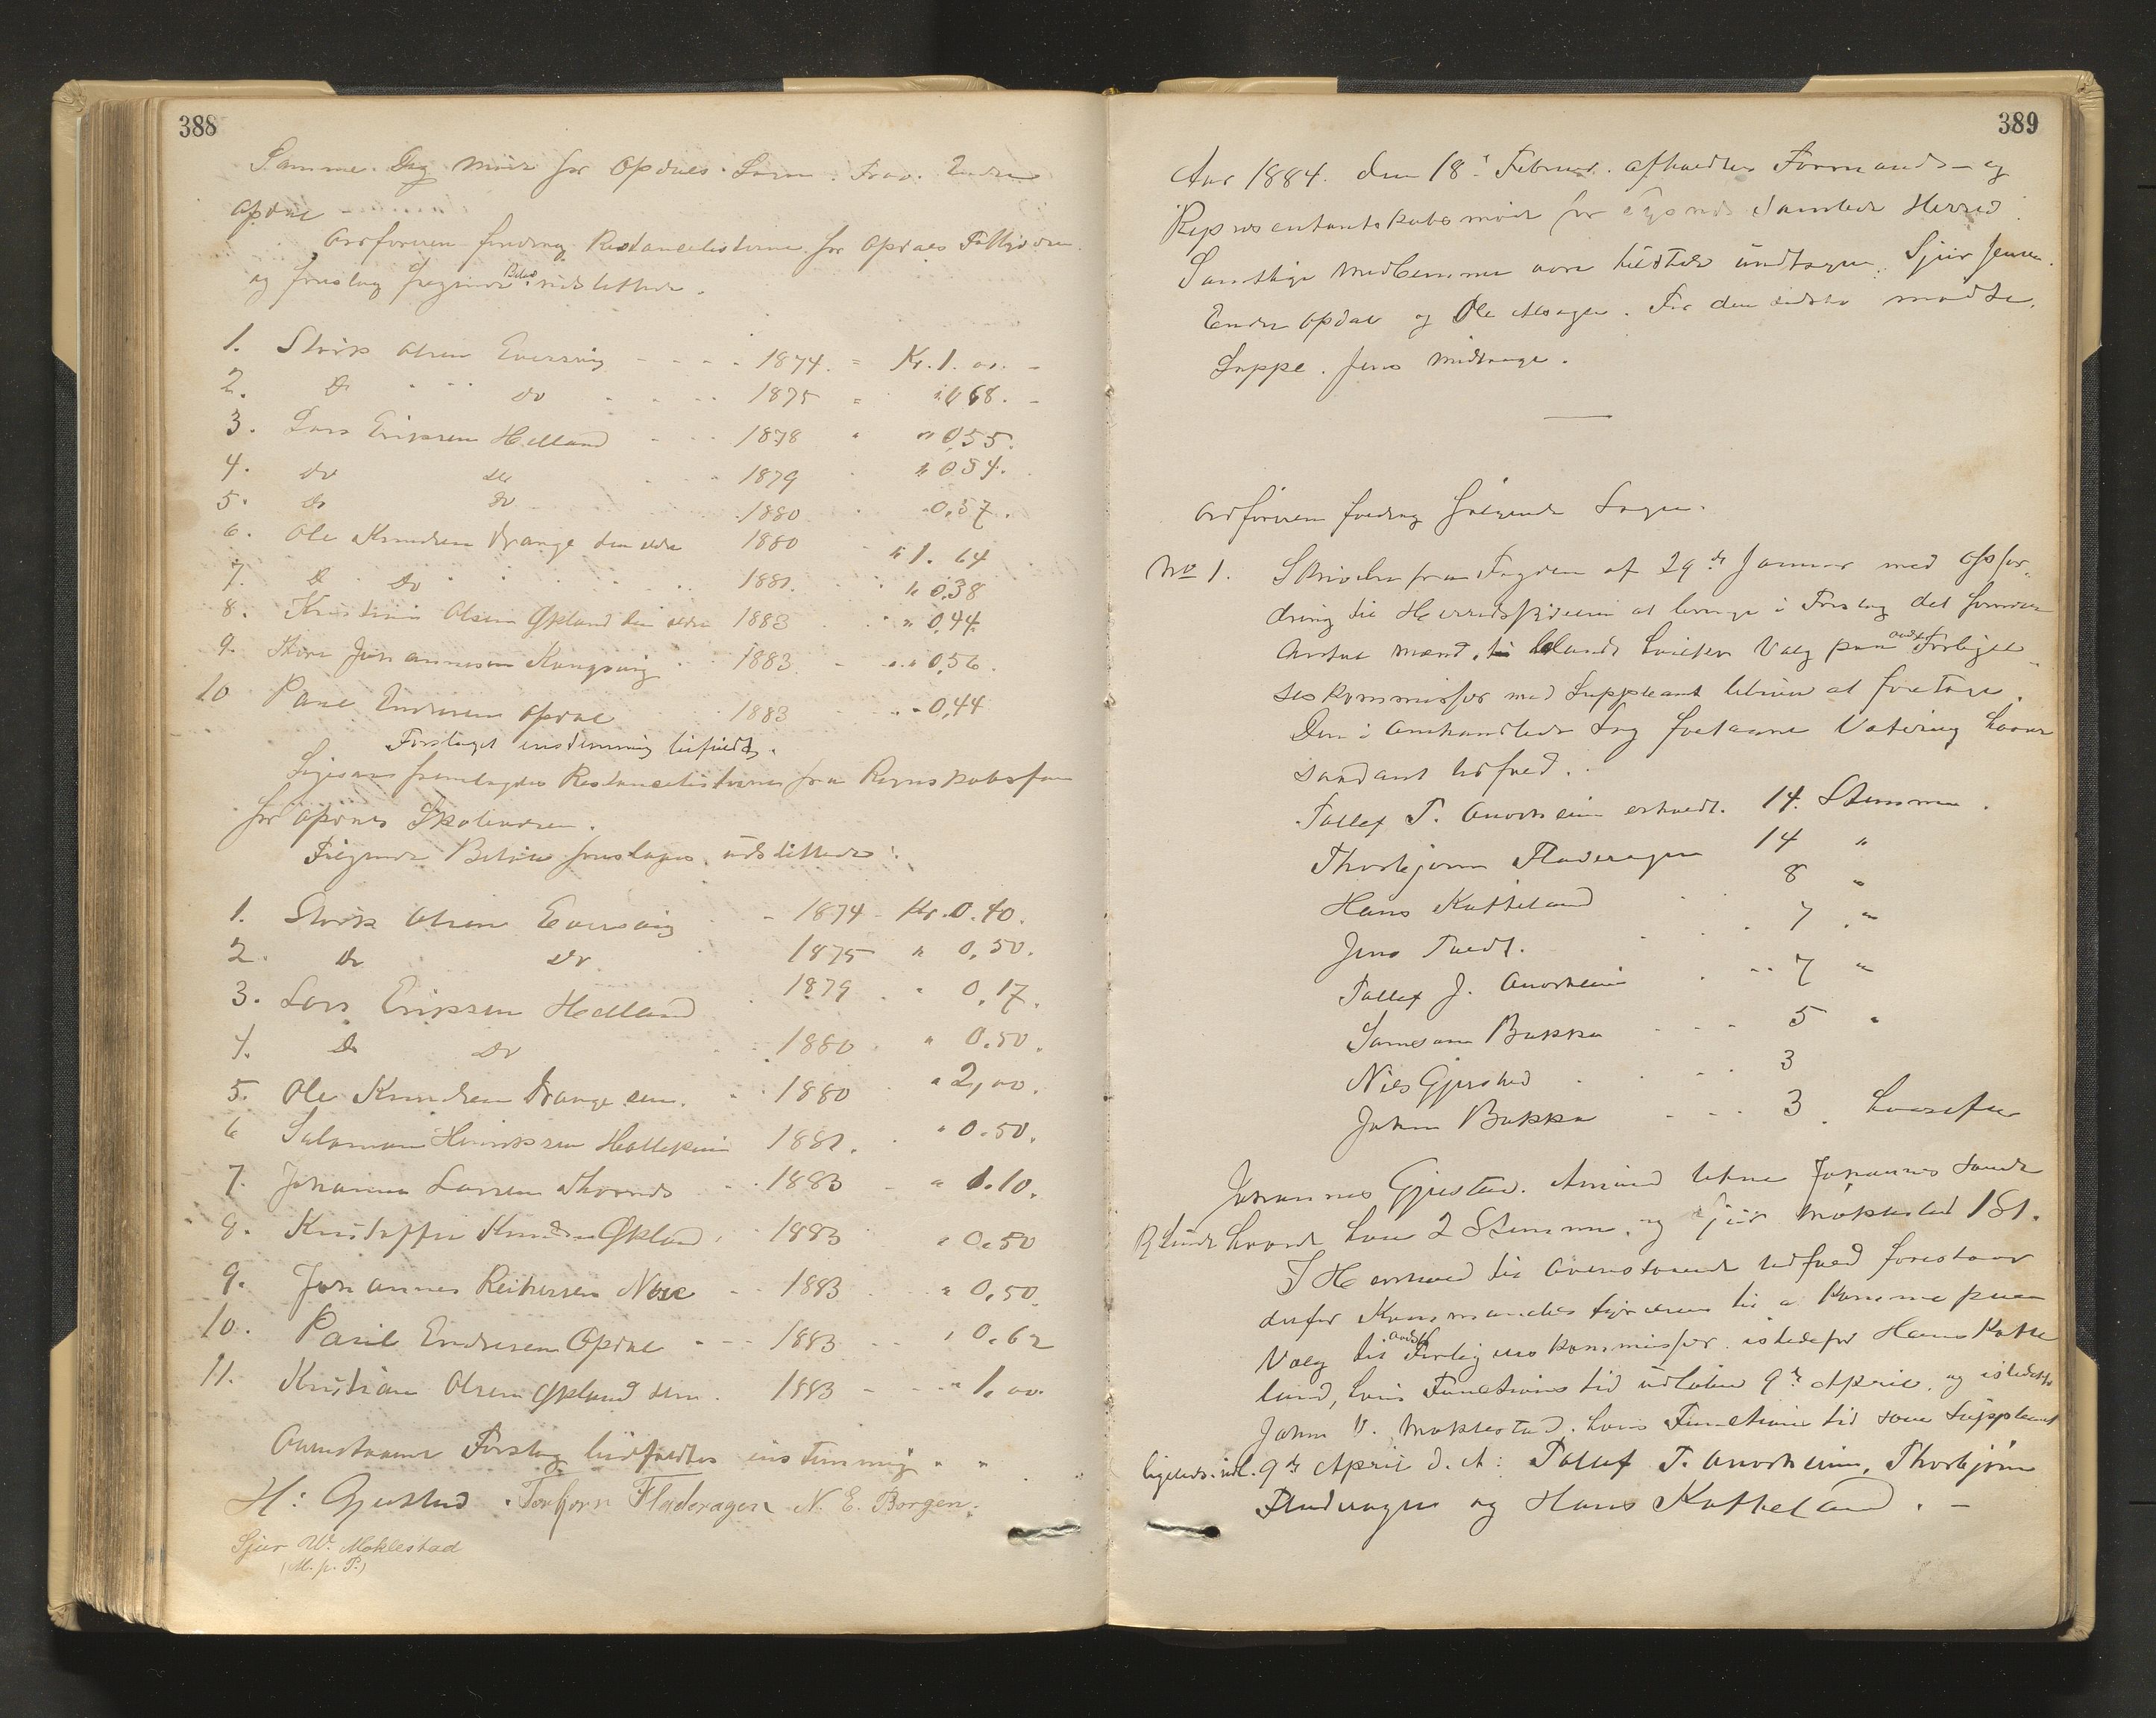 388
Samme Dag möde for Opdals Sogn. Frav. Endre
Opdal
Ordföreren foredrog Restancelisterne for Opdals Fattigvæsen
og foreslog fölgende Belöb udslettede.
1. Störk Olsen Eversvig - - - - 1874. = Kr. 1. 00. -
2. Do do 1875 = " 0,68. -
3. Lars Eriksen Helland - - - 1878 " 0,55.
4. do do 1879 " 0,54.
5. do do 1880 0,57.
6. Ole Knudsen Drange den eldre 1880 " 1. 64
7. Do do 1881. " 0,38
8. Kristian Olsen Økland den eldre 1883 " 0,44.
9. Johannesen Kongsvig 1883 - " 0,56.
10 Paul Endresen Opdal 1883 - 0,44
Forslaget enstemmig bifaldt.
Ligesaa fremlagdes Restancelisterne fra Regnskabsför.
for Opdals Skolevæsen.
Fölgende Belöb foreslages udslettede:
1. Störk Olsen Eversvig - 1874 - Kr. 0. 40.
2. do do 1875 " 0,50.
3. Lars Eriksen Helland 1879 " 0,17.
4. do do 1880 " 0,50.
5. Ole Knudsen Drange sen. 1880 " 2,00.
6 Salamon Henriksen 1881. " 0.50.
7. Johannes Larsen 1883 - " 1.10.
8. Kristoffer Knudsen Økland 1883 " 0.50
9. Johannes Reinersen 1883 " 0,50.
10. Paul Endresen Opdal - - - 1883 " 0.62
11. Kristian Olsen Økland sen. 1883 - " 1,00.
Ovenstaaende Forslag bifaldtes enstemmig.
H: Gjerstad. Torbjørn Fladeragen N. E. Borgen.
Sjur W. Møklestad
(M. p. P.)
389
Aar 1884. den 18. Februar. afholdtes Formands- og
Repræsentantskabsmöde for Tysnes samlede Herred.
Samtlige Medlemmer vare tilstede undtagen: Sjur Jensen
Endre Opdal og Ole . For den sidste mødte
Supple. Jens Midtvaage.
Ordföreren foredrog fölgende Sager.
No 1. Skrivelse fra Fogden af 29de Januar med Opfor-
dring til Herredsstyrelsen at bringe i Forslag det fornødne
Antal Mænd, blandt hvilke Valg paa anden Forligel-
seskommissær med Suppleant bliver at foretage.
Den i omhandlede Sag foretagne Votering havde
saadant Udfald.
Tollef T. Onarheim erholdt. 14. Stemmer.
Thorbjørn Fladeragen 14 "
Hans Katteland 8 "
Jens Tvedt. 7 "
Tollef J. Onarheim 7 "
Samson Bakka 5 "
Nils Gjerstad 3
Johan Bakka 3. hvorefter
Johannes Gjerstad. Amund Johannes Sunde
hvoraf hver 2 Stemmer, og Sjur Møklestad 1 St.
I Henhold til ovenstaaende Udfald foreslaar
derfor Kommunebestyrelsen til at komme paa
Valg til anden Forligelseskommissær istedetfor Hans Katte
land, hvis Functionstid udløber 9de April, og istedetfor
Johan V. Møklestad, hvis Functionstid som Suppleant
ligeledes udl. 9de April d. A: Tollef T. Onarheim, Thorbjørn
Fladeragen og Hans Katteland. -